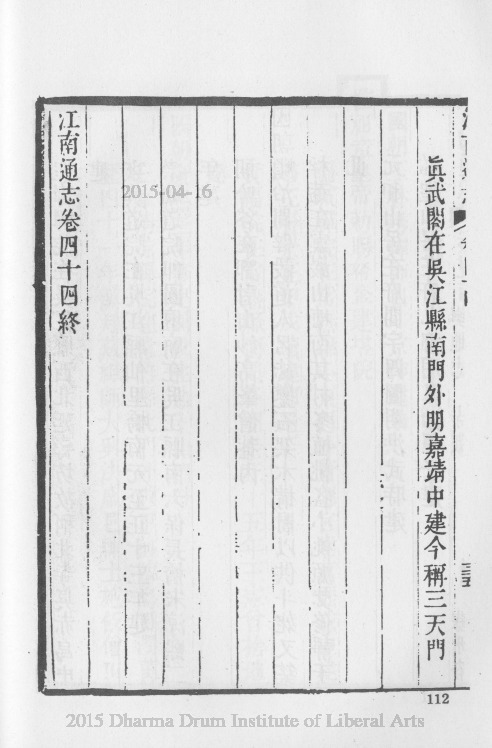 眞武閣在吳江縣南門外明嘉靖中建今稱三天門
江南通志卷四十四終
2015-04-16
112
2015 Dharma Drum Institute of Liberal Arts